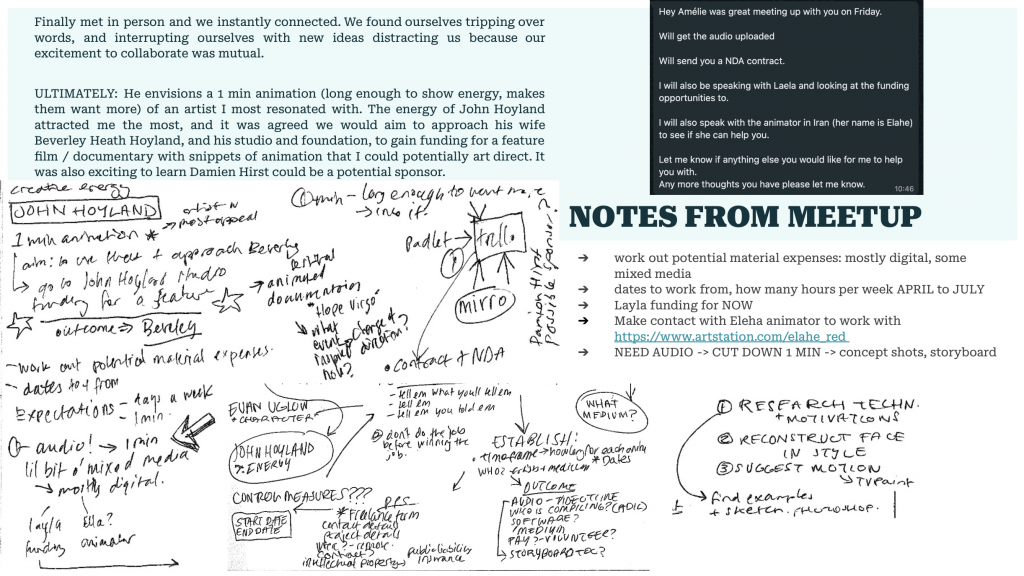 Finally met in person and we instantly connected. We found ourselves tripping over
words, and interrupting ourselves with new ideas distracting us because our
excitement to collaborate was mutual.
ULTIMATELY: He envisions a 1 min animation (long enough to show energy, makes
them want more) of an artist I most resonated with. The energy of John Hoyland
attracted me the most, and it was agreed we would aim to approach his wife
Beverley Heath Hoyland, and his studio and foundation, to gain funding for a feature
film / documentary with snippets of animation that I could potentially art direct. It
was also exciting to learn Damien Hirst could be a potential sponsor.
Hey Amélie was great meeting up with you on Friday.
Will get the audio uploaded
Will send you a NDA contract.
I will also be speaking with Laela and looking at the funding
opportunities to.
I will also speak with the animator in Iran (her name is Elahe)
to see if she can help you.
Let me know if anything else you would like for me to help
you with.
Any more thoughts you have please let me know.
10:46
NOTES FROM MEETUP
➔ work out potential material expenses: mostly digital, some
mixed media
➔ dates to work from, how many hours per week APRIL to JULY
➔ Layla funding for NOW
➔ Make contact with Eleha animator to work with
https://www.artstation.com/elahe_red
➔ NEED AUDIO -> CUT DOWN 1 MIN -> concept shots, storyboard
creative energy
JOHN HOYLAND
most appeal
1 min animation *
approach Beverly
go to John Hoyland studio
funding for a feature
outcome => Beverley
- work out potential material expenses.
- dates to
Expectations - days a week
- 1 min.
audio! → 1 min
lil bit o' mixed media
→ mostly digital.
layla
funding
Ella?
animator
1 min - long enough to want more
→ into it.
padlet →
trello
mirro
Damion Hirst
possible sponsor?
animated
documentaries
"Hope Virgo"
• Contract + NDA
EUAN UGLOW
+ CHARACTER
JOHN HOYLAND
?: ENERGY
CONTROL MEASURES???
START DATE
END DATE
* Freelance form
contact details
project details
contract?
intellectual property
public liability
insurance
- tell em what you'll tell em
- tell em
- tell em you told em
don't do the job
before winning the
job.
ESTABLISH:
• timeframe → how long for each one
* Dates
WHO? artists + medium
OUTCOME
SOFTWARE?
MEDIUM
PAY? - VOLUNTEER?
→ STORYBOARD ETC?
WHAT
MEDIUM?
① RESEARCH TECHN.
+ MOTIVATIONS
② RECONSTRUCT FACE
IN STYLE
③ SUGGEST MOTION
→ TVPaint
→ find examples
+ sketch. photoshop.